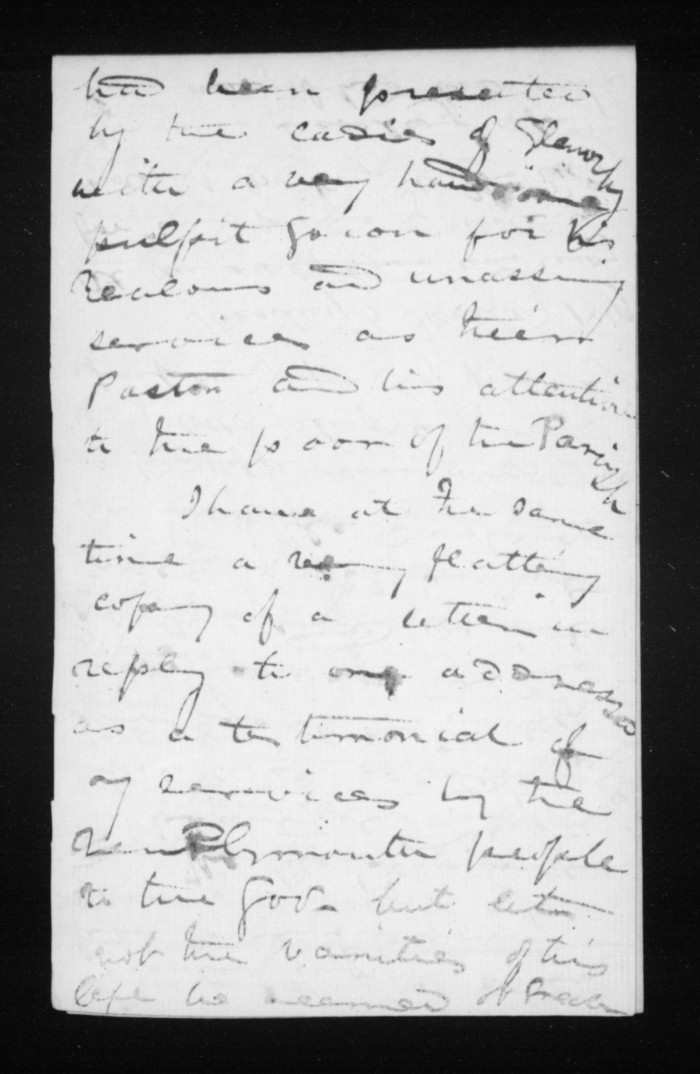 had been presented
by the Ladies of Glenorchy
with a very handsome
pulpit Gown for his
zealous and unassuming
services as their
Pastor and his attention
to the poor of the Parish
I have at the same
time a very flattering
copy of a letter in
reply to one addressed
as a testimonial of
my services by the
New Plymouth people
to the Gov. but let
not the vanities of this
life be deemed of